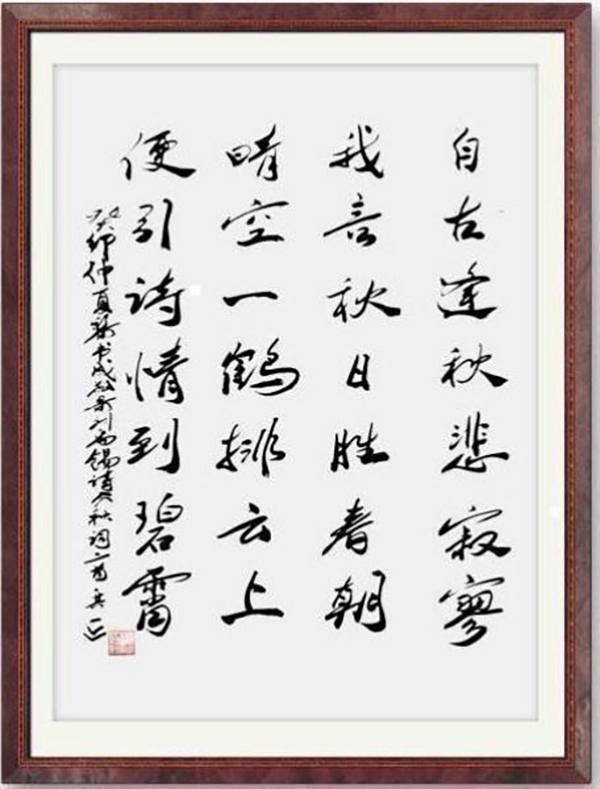 自古逢秋悲寂寥
我言秋日胜春朝
晴空一鹤排云上
便引诗情到碧霄
癸卯仲夏 书 刘禹锡诗 秋词二首 之一